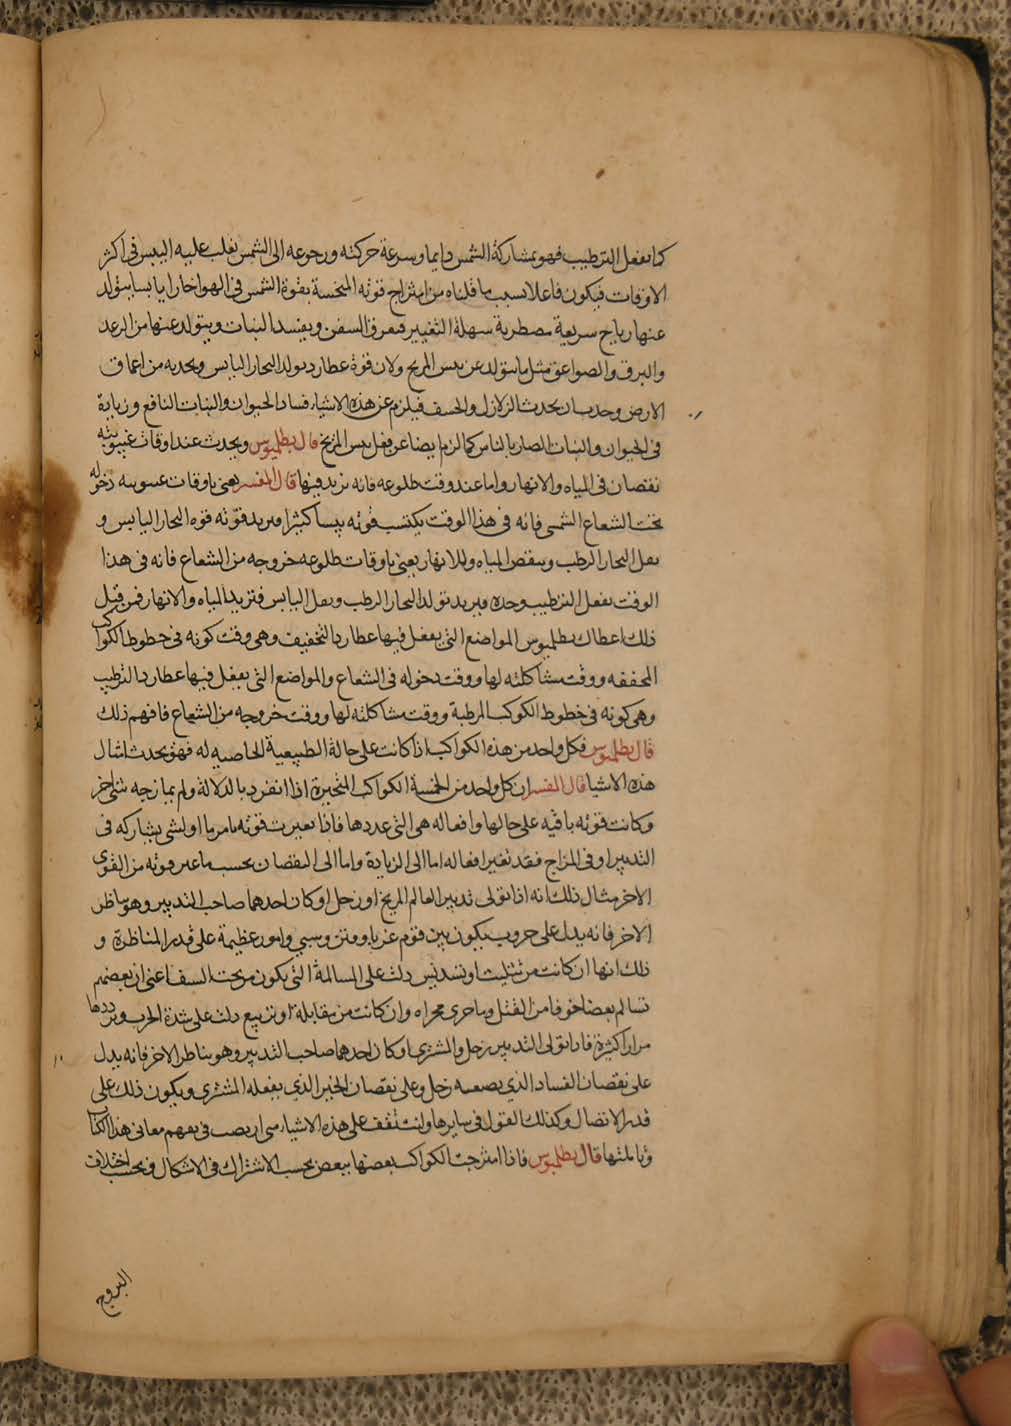 كما يفعل الترطيب فهو بمشاركة الشمس دايما وسرعة حركته ورجوعه الى الشمس يغلب عليه اليبس فى اكثر
الاوقات فيكون فاعلا بسبب ما قلناه من امتزاج قوته المتخمسة بقوة الشمس فى الهوا بخارا يابسا يتولد
عنها رياح سريعة مضطربة سهلة التغيير فيغرق السفن ويفسد النبات ويتولد عنها من الرعد
والبرق والصواعق مثل ما يتولد عن يبس المريخ ولان قوة عطارد يولد البخار اليابس ويجذبه من اعماق
الارض وجب ان يحدث الزلازل والخسف فيلزم عن هذه الاشياء فساد الحيوان والنبات النافع وزيادة
فى الحيوان والنبات الضار بالناس كما لزم ايضا عن فعل يبس المريخ قال بطلميوس ويحدث عند اوقات غيبوبته
نقصان فى المياه والانهار واما عند وقت طلوعه فانه يزيد فيها قال المفسر يعنى باوقات غيبوبته دخوله
تحت الشعاع الشمسى فانه فى هذا الوقت يكتسب قوته يبسا كثيرا فيزيد قوته قوة البخار اليابس و
يقل البخار الرطب وينقص المياه والانهار يعنى باوقات طلوعه خروجه من الشعاع فانه فى هذا
الوقت يفعل الترطيب وحده فيزيد تولد البخار الرطب ويقل اليابس فتزيد المياه والانهار فمن قبل
ذلك اعطاك بطلميوس المواضع التى يفعل فيها عطارد بالتخفيف وهى وقت كونه فى خطوط الكواكب
المجففه ووقت مشاكلته لها ووقت دخوله فى الشعاع والمواضع التى يفعل فيها عطارد بالترطيب
وهى كونه فى خطوط الكوكب المرطبة ووقت مشاكلته لها ووقت خروجه من الشعاع فافهم ذلك
قال بطلميوس فكل واحد من هذه الكواكب اذا كانت على حالة الطبيعية الخاصيه له فهو يحدث امثال
هذه الاشيا قال المفسر ان كل واحد من الخمسة الكواكب المتحيرة اذا انفرد بالدلالة ولم يمازجه شى اخر
وكانت قوته باقيه على حالها وافعاله هى التى عددها فاذا تغيرت قوته بامر ما او لشى يشاركه فى
التدبير او فى المزاج فقد تغير افعاله اما الى الزيادة واما الى النقصان بحسب ما غير قوته من القوى
الاخر مثال ذلك انه اذا تولى تدبير العالم المريخ او زحل او كان احدهما صاحب التدبير وهو يناظر
الاخر فانه يدل على حروب يكون بين قوم غربا وفتن وسبى وامور عظيمة على قدر المناظرة و
ذلك انها ان كانت من تثليث او تسديس دلت على المسالمة التى يكون من تحت السيف اعنى ان بعضهم
تسالم بعضا خوفا من القتل وما جرى مجراه وان كانت من مقابلة او تربيع دلت على شدة الحرب وترددها
مرارا كثيرة فاذا تولى التدبير زحل والمشترى او كان احدهما صاحب التدبير وهو يناظر الاخر فانه يدل
على نقصان الفساد الذى يصنعه زحل وعلى نقصان الخير الذى يفعله المشترى ويكون ذلك على
قدر الاتصال وكذلك القول فى سايرها وانت تقف على هذه الاشياء متى ارتضت فى تفهم معانى هذا الكتاب
وتاملتها قال بطلميوس فاذا امتزجت الكواكب بعضها ببعض بحسب الاشتراك فى الاشكال وبحسب اختلاف
البروج